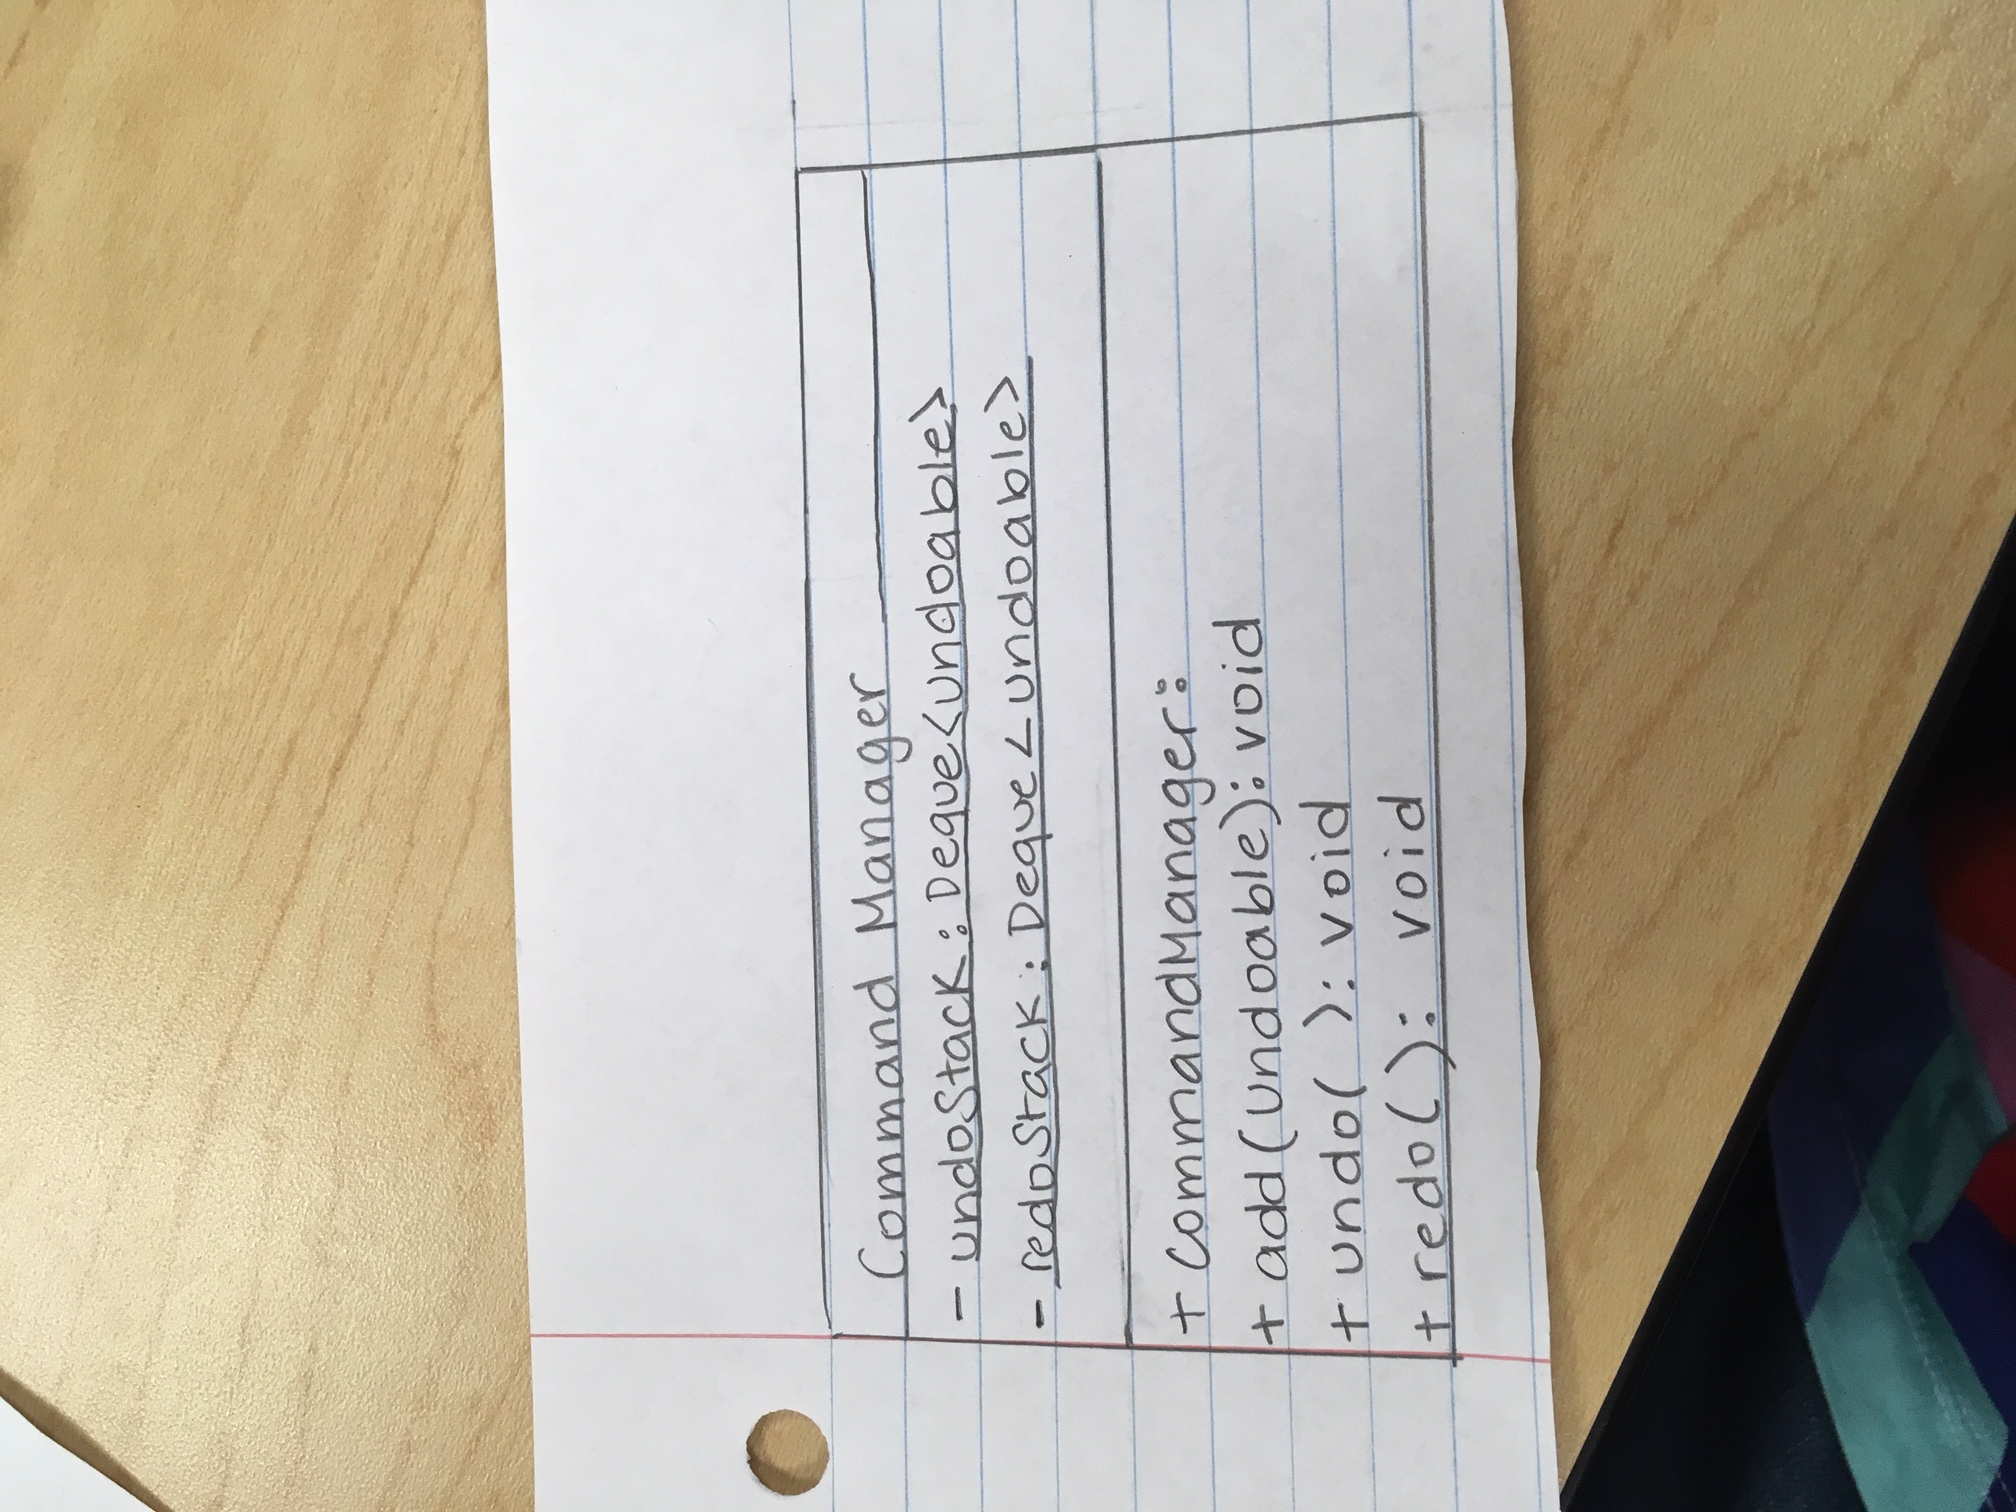 Command Manager
- undoStack: Deque<Undoable>
- redoStack: Deque<Undoable>
+ CommandManager:
+ add(Undoable): void
+ undo( ): void
+ redo( ): void